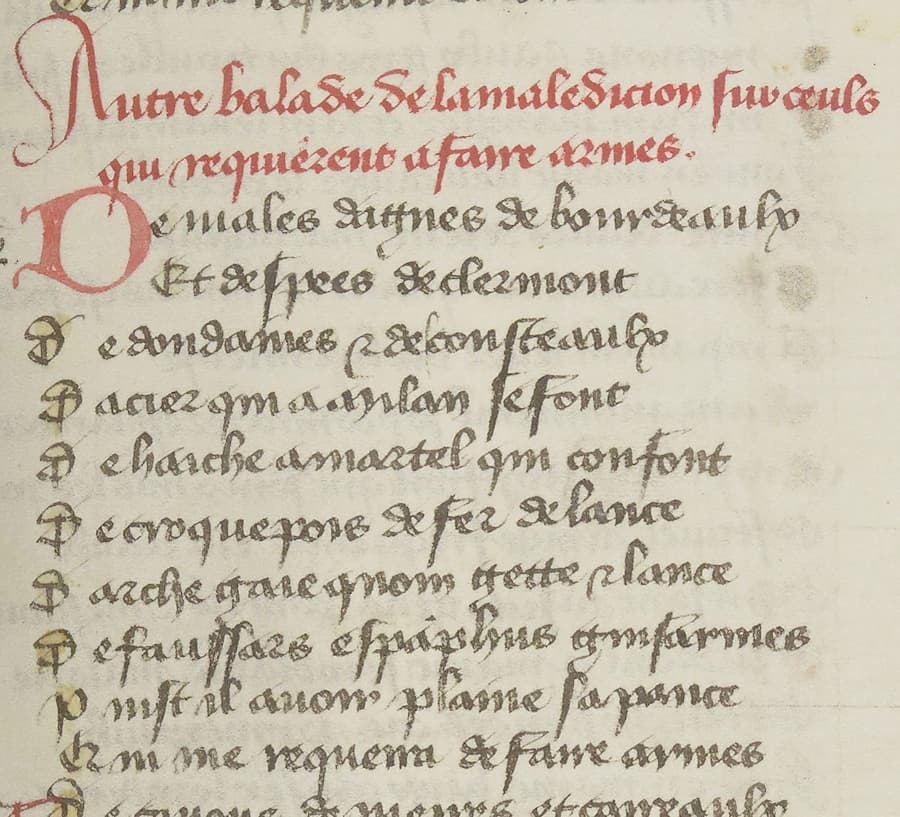 Autre balade de la maledicion sur ceuls
qui requierent a faire armes.
De males dagues de bourdeaulx
Et despees de clermont
De dondaines & de cousteaulx
Dacier qui a mlan se font
De haiche a martel qui confont
De croquepois de fer de lance
Darche gaie quom gette & lance
De faussars espaphus guisarmes
Puist il avoir plaine sa pance
Qui me requerra de faire armes